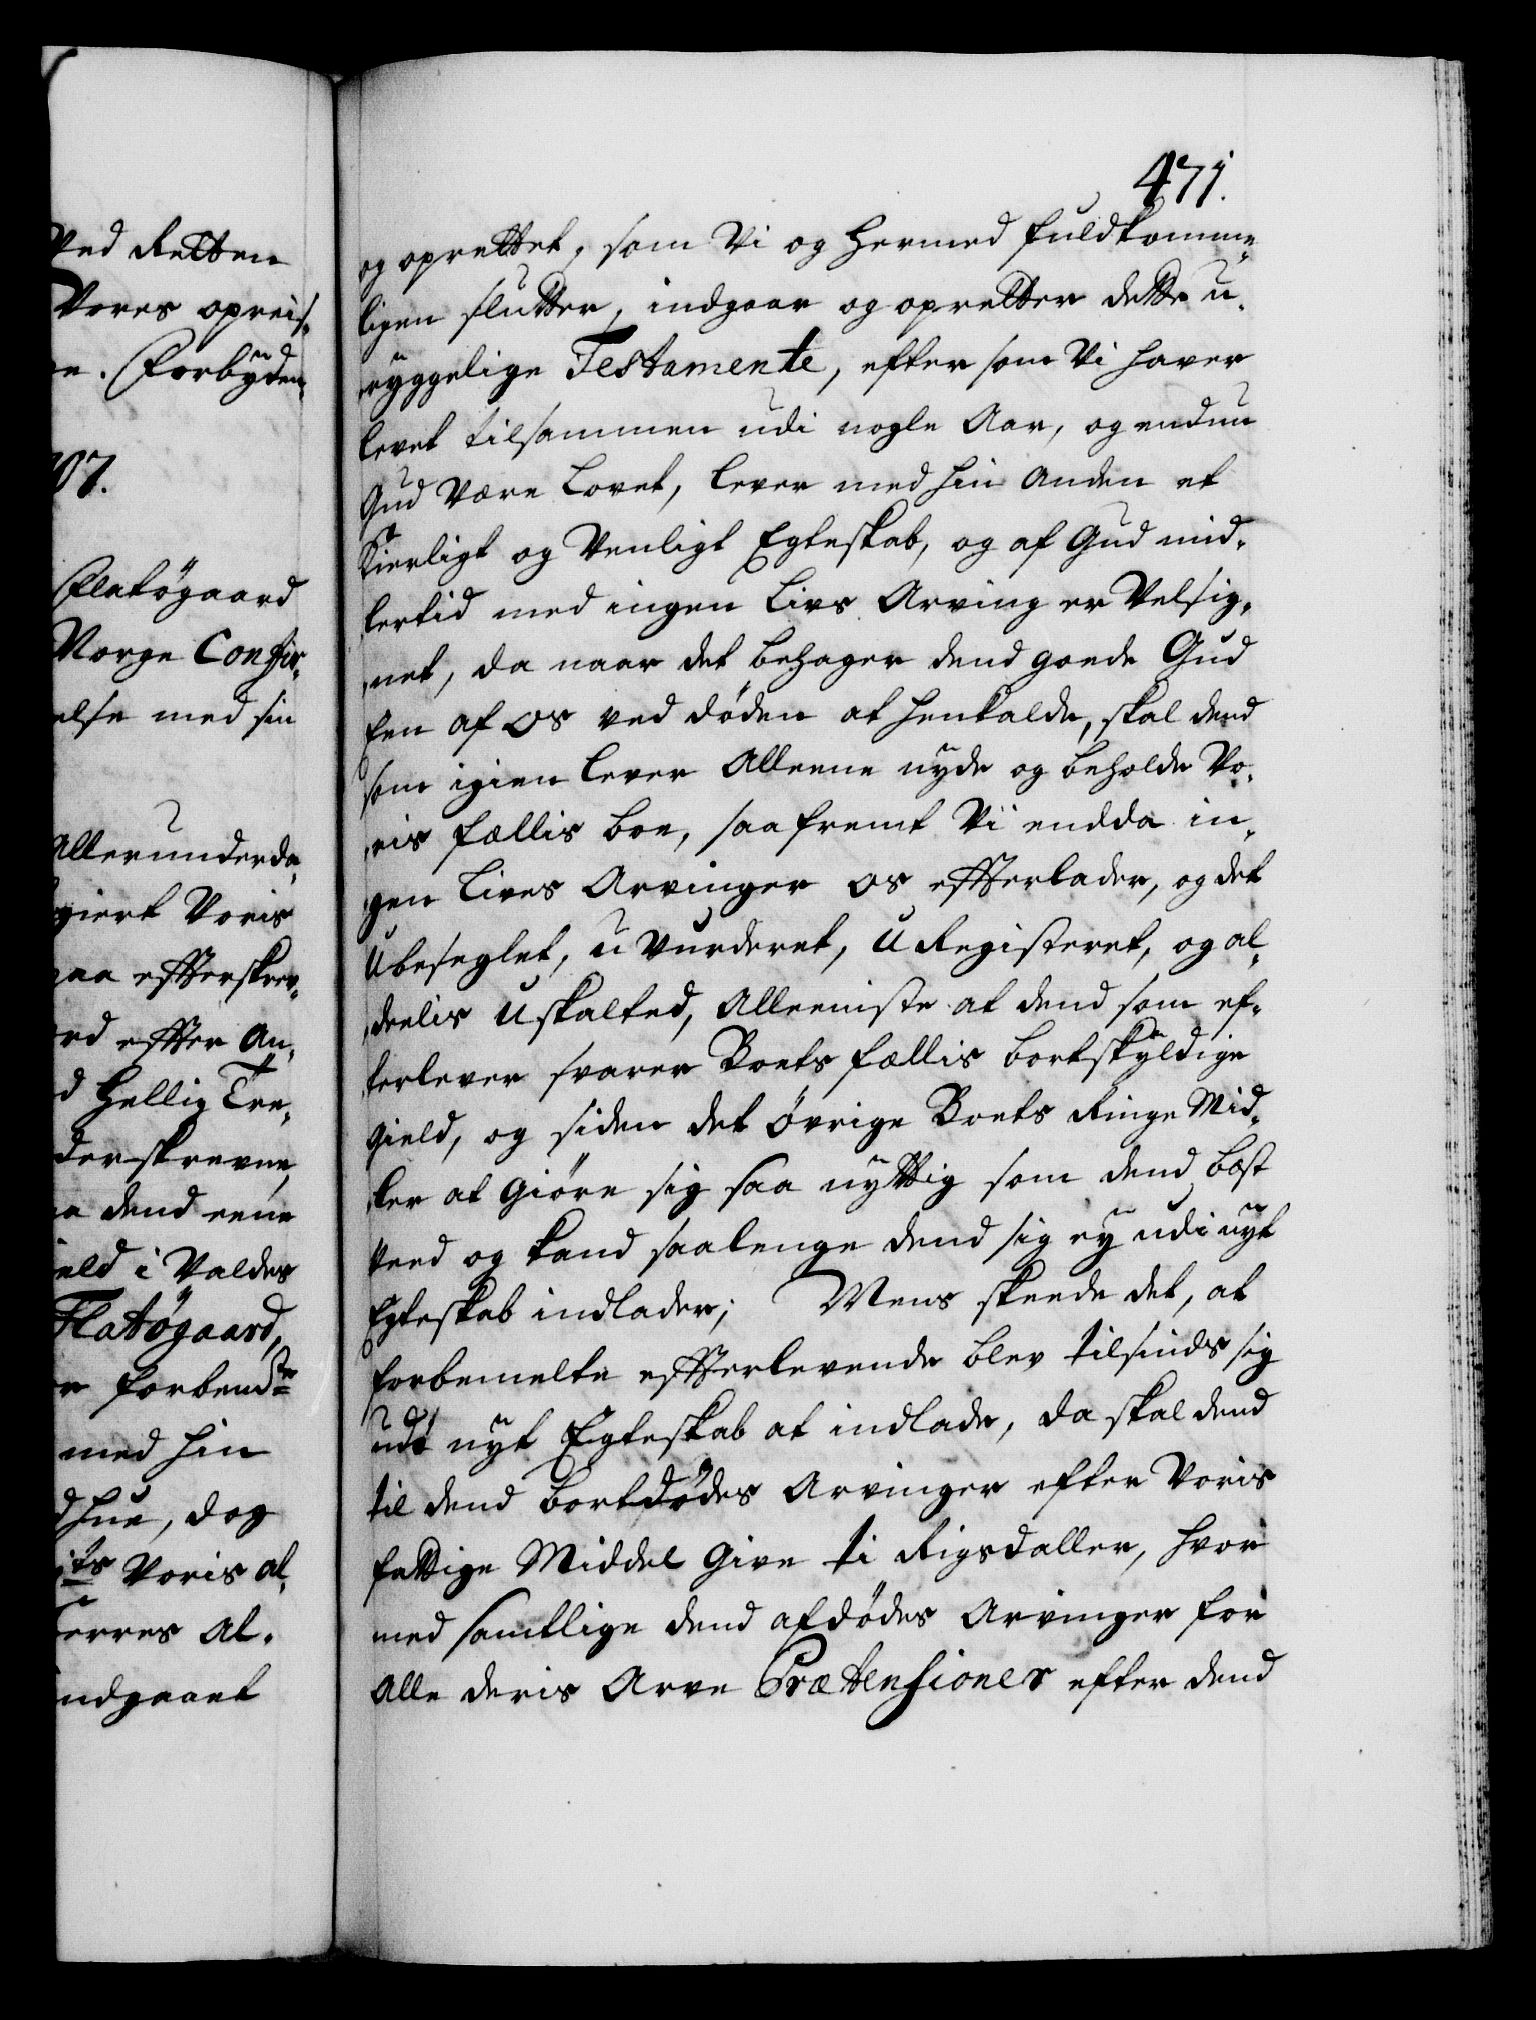 Ved Retten
Vores opreis-
e. Forbyden-
07.
Flatøgaard
Norge Confir-
else med sin
Allerunderda-
giert Voris
paa effterskrev-
rd effter An-
d Hellig Tre-
derskrevne
a dend eene
ield i Valdes
Flatøgaard,
e forbend
med hin
d hue, dog
ts Voris al-
erres Al-
ndgaaet
471.
og oprettet, som Vi og hermed fuldkomme-
ligen slutter, indgaar og opretter dette u-
ryggelige Testamente, efter som Vi haver
levet tilsammen udi nogle Aar, og endnu
Gud Være Lovet, lever med hin Anden et
Kierligt og Venligt Egteskab, og af Gud mid-
lertid med ingen Livs Arving er Velsig-
net, da naar det behager dend goede Gud
Een af os ved døden at henkalde, skal dend
som igien lever Alleene nyde og beholde Vo-
ris fællis boe, saafremt Vi endda in-
gen Lives Arvinger os effterlader, og det
Ubeseglet, u Vurderet, U Registeret, og al-
deelis Uskatted, Alleeniste at dend som ef-
terlever svarer Boets fællis bortskyldige
gield, og siden det øvrige Boets Ringe Mid-
ler at Giøre sig saa nyttig som dend best
Veed og kand saalenge dend sig ey udi nyt
Egteskab indlader; Mens skeede det, at
forbemelte effterlevende blev tilsinds sig
udi nyt Egteskab at indlade, da skal dend
til dend bortdødes Arvinger efter Voris
fattige Middel Give ti Rigsdaller, hvor
med samtlige dend afdødes Arvinger for
Alle deris Arve Prætensioner efter dend